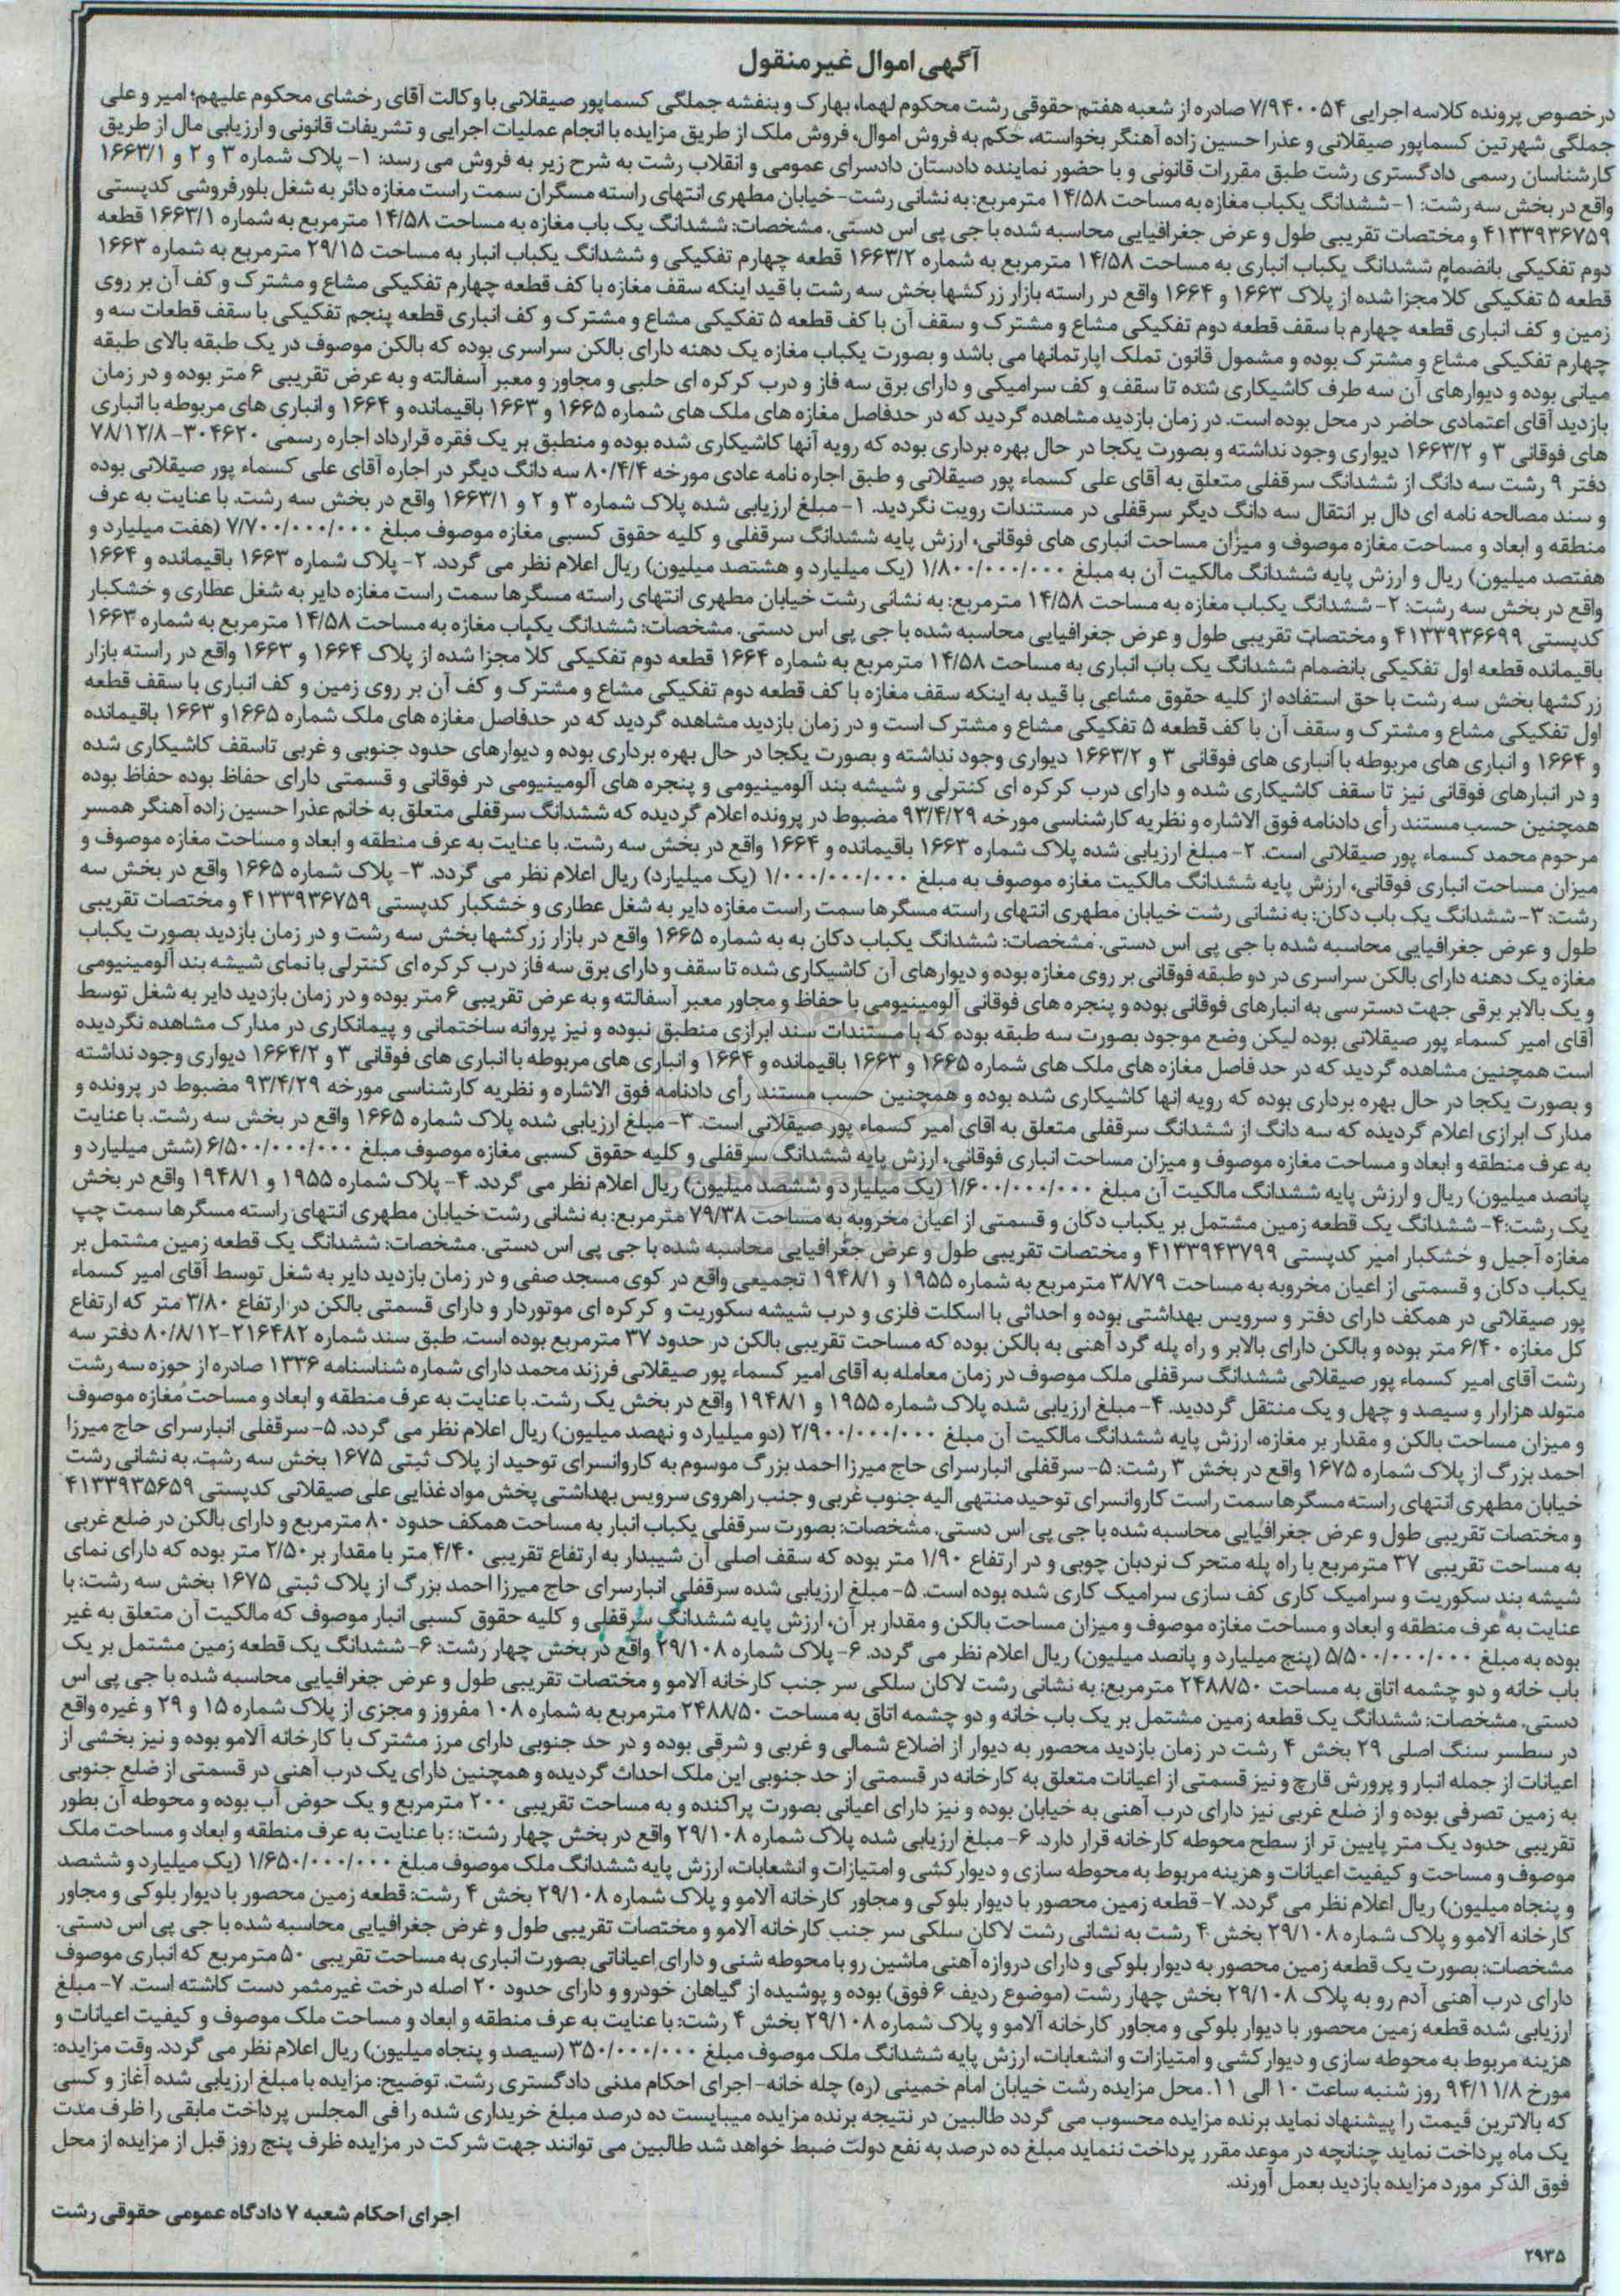 آگهی اموال غیر منقول
در خصوص پرونده کلاسه اجرایی ۷/۹۴۰۰۵۴ صادره از شعبه هفتم حقوقی رشت محکوم لهما، بهارک و بنفشه جملگی کسماپور صیقلانی با وکالت آقای رخشای محکوم علیهم؛ امیر و علی
جملگی شهرتین کسماپور صیقلانی و عذرا حسین زاده آهنگر بخواسته، حکم به فروش اموال، فروش ملک از طریق مزایده با انجام عملیات اجرایی و تشریفات قانونی و ارزیابی مال از طریق
کارشناسان رسمی دادگستری رشت طبق مقررات قانونی و با حضور نماینده دادستان دادسرای عمومی و انقلاب رشت به شرح زیر به فروش می رسد: ۱- پلاک شماره ۳ و ۲ و ۱۶۶۳/۱
واقع در بخش سه رشت: ۱- ششدانگ یکباب مغازه به مساحت ۱۴/۵۸ مترمربع: به نشانی رشت-خیابان مطهری انتهای راسته مسگران سمت راست مغازه دائر به شغل بلور فروشی کدپستی
۴۱۳۳۹۳۶۷۵۹ و مختصات تقریبی طول و عرض جغرافیایی محاسبه شده با جی پی اس دستی. مشخصات: ششدانگ یک باب مغازه به مساحت ۱۴/۵۸ مترمربع به شماره ۱۶۶۳/۱ قطعه
دوم تفکیکی بانضمام ششدانگ یکباب انباری به مساحت ۱۴/۵۸ مترمربع به شماره ۱۶۶۳/۲ قطعه چهارم تفکیکی و ششدانگ یکباب انبار به مساحت ۲۹/۱۵ مترمربع به شماره ۱۶۶۳
قطعه ۵ تفکیکی کلا مجزا شده از پلاک ۱۶۶۳ و ۱۶۶۴ واقع در راسته بازار زرکشها بخش سه رشت با قید اینکه سقف مغازه با کف قطعه چهارم تفکیکی مشاع و مشترک و کف آن بر روی
زمین و کف انباری قطعه چهارم با سقف قطعه دوم تفکیکی مشاع و مشترک و سقف آن با کف قطعه ۵ تفکیکی مشاع و مشترک و کف انباری قطعه پنجم تفکیکی با سقف قطعات سه و
چهارم تفکیکی مشاع و مشترک بوده و مشمول قانون تملک اپارتمانها می باشد و بصورت یکباب مغازه یک دهنه دارای بالکن سراسری بوده که بالکن موصوف در یک طبقه بالای طبقه
میانی بوده و دیوارهای آن سه طرف کاشیکاری شده تا سقف و کف سرامیکی و دارای برق سه فاز و درب کرکره ای حلبی و مجاور و معبر آسفالته و به عرض تقریبی ۶ متر بوده و در زمان
بازدید آقای اعتمادی حاضر در محل بوده است. در زمان بازدید مشاهده گردید که در حدفاصل مغازه های ملک های شماره ۱۶۶۵ و ۱۶۶۳ باقیمانده و ۱۶۶۴ و انباری های مربوطه با انباری
های فوقانی ۳ و ۱۶۶۳/۲ دیواری وجود نداشته و بصورت یکجا در حال بهره برداری بوده که رویه آنها کاشیکاری شده بوده و منطبق بر یک فقره قرارداد اجاره رسمی ۳۰۴۶۲۰- ۷۸/۱۲/۸
دفتر ۹ رشت سه دانگ از ششدانگ سرقفلی متعلق به آقای علی کسماء پور صیقلانی و طبق اجاره نامه عادی مورخه ۸۰/۴/۴ سه دانگ دیگر در اجاره آقای علی کسماء پور صیقلانی بوده
و سند مصالحه نامه ای دال بر انتقال سه دانگ دیگر سرقفلی در مستندات رویت نگردید. ۱- مبلغ ارزیابی شده پلاک شماره ۳ و ۲ و ۱۶۶۳/۱ واقع در بخش سه رشت. با عنایت به عرف
منطقه و ابعاد و مساحت مغازه موصوف و میزان مساحت انباری های فوقانی، ارزش پایه ششدانگ سرقفلی و کلیه حقوق کسبی مغازه موصوف مبلغ ۷/۷۰۰/۰۰۰/۰۰۰ (هفت میلیارد و
هفتصد میلیون) ریال و ارزش پایه ششدانگ مالکیت آن به مبلغ ۱/۸۰۰/۰۰۰/۰۰۰ (یک میلیارد و هشتصد میلیون) ریال اعلام نظر می گردد. ۲- پلاک شماره ۱۶۶۳ باقیمانده و ۱۶۶۴
واقع در بخش سه رشت: ۲- ششدانگ یکباب مغازه به مساحت ۱۴/۵۸ مترمربع: به نشانی رشت خیابان مطهری انتهای راسته مسگرها سمت راست مغازه دایر به شغل عطاری و خشکبار
کدپستی ۴۱۳۳۹۳۶۶۹۹ و مختصات تقریبی طول و عرض جغرافیایی محاسبه شده با جی پی اس دستی. مشخصات: ششدانگ یکباب مغازه به مساحت ۱۴/۵۸ مترمربع به شماره ۱۶۶۳
باقیمانده قطعه اول تفکیکی بانضمام ششدانگ یک باب انباری به مساحت ۱۴/۵۸ مترمربع به شماره ۱۶۶۴ قطعه دوم تفکیکی کلا مجزا شده از پلاک ۱۶۶۴ و ۱۶۶۳ واقع در راسته بازار
زرکشها بخش سه رشت با حق استفاده از کلیه حقوق مشاعی با قید به اینکه سقف مغازه با کف قطعه دوم تفکیکی مشاع و مشترک و کف آن بر روی زمین و کف انباری با سقف قطعه
اول تفکیکی مشاع و مشترک و سقف آن با کف قطعه ۵ تفکیکی مشاع و مشترک است و در زمان بازدید مشاهده گردید که در حدفاصل مغازه های ملک شماره ۱۶۶۵و ۱۶۶۳ باقیمانده
و ۱۶۶۴ و انباری های مربوطه با انباری های فوقانی ۳ و ۱۶۶۳/۲ دیواری وجود نداشته و بصورت یکجا در حال بهره برداری بوده و دیوارهای حدود جنوبی و غربی تاسقف کاشیکاری شده
و در انبارهای فوقانی نیز تا سقف کاشیکاری شده و دارای درب کرکره ای کنترلی و شیشه بند آلومینیومی و پنجره های آلومینیومی در فوقانی و قسمتی دارای حفاظ بوده حفاظ بوده
همچنین حسب مستند رأی دادنامه فوق الاشاره و نظریه کارشناسی مورخه ۹۳/۴/۲۹ مضبوط در پرونده اعلام گردیده که ششدانگ سرقفلی متعلق به خانم عذرا حسین زاده آهنگر همسر
مرحوم محمد کسماء پور صیقلانی است. ۲- مبلغ ارزیابی شده پلاک شماره ۱۶۶۳ باقیمانده و ۱۶۶۴ واقع در بخش سه رشت. با عنایت به عرف منطقه و ابعاد و مساحت مغازه موصوف و
میزان مساحت انباری فوقانی، ارزش پایه ششدانگ مالکیت مغازه موصوف به مبلغ ۱/۰۰۰/۰۰۰/۰۰۰ (یک میلیارد) ریال اعلام نظر می گردد. ۳- پلاک شماره ۱۶۶۵ واقع در بخش سه
رشت: ۳- ششدانگ یک باب دکان: به نشانی رشت خیابان مطهری انتهای راسته مسگرها سمت راست مغازه دایر به شغل عطاری و خشکبار کدپستی ۴۱۳۳۹۳۶۷۵۹ و مختصات تقریبی
طول و عرض جغرافیایی محاسبه شده با جی پی اس دستی. مشخصات: ششدانگ یکباب دکان به به شماره ۱۶۶۵ واقع در بازار زرکشها بخش سه رشت و در زمان بازدید بصورت یکباب
مغازه یک دهنه دارای بالکن سراسری در دو طبقه فوقانی بر روی مغازه بوده و دیوارهای آن کاشیکاری شده تا سقف و دارای برق سه فاز درب کرکره ای کنترلی با نمای شیشه بند آلومینیومی
و یک بالابر برقی جهت دسترسی به انبارهای فوقانی بوده و پنجره های فوقانی آلومینیومی با حفاظ و مجاور معبر آسفالته و به عرض تقریبی ۶ متر بوده و در زمان بازدید دایر به شغل توسط
آقای امیر کسماء پور صیقلانی بوده لیکن وضع موجود بصورت سه طبقه بوده که با مستندات سند ابرازی منطبق نبوده و نیز پروانه ساختمانی و پیمانکاری در مدارک مشاهده نگردیده
است همچنین مشاهده گردید که در حد فاصل مغازه های ملک های شماره ۱۶۶۵ و ۱۶۶۳ باقیمانده و ۱۶۶۴ و انباری های مربوطه با انباری های فوقانی ۳ و ۱۶۶۴/۲ دیواری وجود نداشته
و بصورت یکجا در حال بهره برداری بوده که رویه انها کاشیکاری شده بوده و همچنین حسب مستند رأی دادنامه فوق الاشاره و نظریه کارشناسی مورخه ۹۳/۴/۲۹ مضبوط در پرونده و
مدارک ابرازی اعلام گردیده که سه دانگ از ششدانگ سرقفلی متعلق به اقای امیر کسماء پور صیقلانی است. ۳- مبلغ ارزیابی شده پلاک شماره ۱۶۶۵ واقع در بخش سه رشت. با عنایت
به عرف منطقه و ابعاد و مساحت مغازه موصوف و میزان مساحت انباری فوقانی، ارزش پایه ششدانگ سرقفلی و کلیه حقوق کسبی مغازه موصوف مبلغ ۶/۵۰۰/۰۰۰/۰۰۰ (شش میلیارد و
پانصد میلیون) ریال و ارزش پایه ششدانگ مالکیت آن مبلغ ۱/۶۰۰/۰۰۰/۰۰۰ (یک میلیارد و ششصد میلیون) ریال اعلام نظر می گردد. ۴- پلاک شماره ۱۹۵۵ و ۱۹۴۸/۱ واقع در بخش
یک رشت:۴- ششدانگ یک قطعه زمین مشتمل بر یکباب دکان و قسمتی از اعیان مخروبه به مساحت ۷۹/۳۸ مترمربع: به نشانی رشت خیابان مطهری انتهای راسته مسگرها سمت چپ
مغازه آجیل و خشکبار امیر کدپستی ۴۱۳۳۹۴۳۷۹۹ و مختصات تقریبی طول و عرض جغرافیایی محاسبه شده با جی پی اس دستی. مشخصات: ششدانگ یک قطعه زمین مشتمل بر
یکباب دکان و قسمتی از اعیان مخروبه به مساحت ۳۸/۷۹ مترمربع به شماره ۱۹۵۵ و ۱۹۴۸/۱ تجمیعی واقع در کوی مسجد صفی و در زمان بازدید دایر به شغل توسط آقای امیر کسماء
پور صیقلانی در همکف دارای دفتر و سرویس بهداشتی بوده و احداثی با اسکلت فلزی و درب شیشه سکوریت و کرکره ای موتوردار و دارای قسمتی بالکن در ارتفاع ۳/۸۰ متر که ارتفاع
کل مغازه ۶/۴۰ متر بوده و بالکن دارای بالابر و راه پله گرد آهنی به بالکن بوده که مساحت تقریبی بالکن در حدود ۳۷ مترمربع بوده است. طبق سند شماره ۲۱۶۴۸۲-۸۰/۸/۱۲ دفتر سه
رشت آقای امیر کسماء پور صیقلانی ششدانگ سرقفلی ملک موصوف در زمان معامله به آقای امیر کسماء پور صیقلانی فرزند محمد دارای شماره شناسنامه ۱۳۳۶ صادره از حوزه سه رشت
متولد هزار و سیصد و چهل و یک منتقل گردیده. ۴- مبلغ ارزیابی شده پلاک شماره ۱۹۵۵ و ۱۹۴۸/۱ واقع در بخش یک رشت. با عنایت به عرف منطقه و ابعاد و مساحت مغازه موصوف
و میزان مساحت بالکن و مقدار بر مغازه، ارزش پایه ششدانگ مالکیت آن مبلغ ۲/۹۰۰/۰۰۰/۰۰۰ (دو میلیارد و نهصد میلیون) ریال اعلام نظر می گردد. ۵- سرقفلی انبارسرای حاج میرزا
احمد بزرگ از پلاک شماره ۱۶۷۵ واقع در بخش ۳ رشت: ۵- سرقفلی انبارسرای حاج میرزا احمد بزرگ موسوم به کاروانسرای توحید از پلاک ثبتی ۱۶۷۵ بخش سه رشت. به نشانی رشت
خیابان مطهری انتهای راسته مسگرها سمت راست کاروانسرای توحید منتهی الیه جنوب غربی و جنب راهروی سرویس بهداشتی پخش مواد غذایی علی صیقلانی کدپستی ۴۱۳۳۹۳۵۶۵۹
و مختصات تقریبی طول و عرض جغرافیایی محاسبه شده با جی پی اس دستی. مشخصات: بصورت سرقفلی یکباب انبار به مساحت همکف حدود ۸۰ مترمربع و دارای بالکن در ضلع غربی
به مساحت تقریبی ۳۷ مترمربع با راه پله متحرک نردبان چوبی و در ارتفاع ۱/۹۰ متر بوده که سقف اصلی آن شیبدار به ارتفاع تقریبی ۴/۴۰ متر با مقدار بر ۲/۵۰ متر بوده که دارای نمای
شیشه بند سکوریت و سرامیک کاری کف سازی سرامیک کاری شده بوده است. ۵- مبلغ ارزیابی شده سرقفلی انبارسرای حاج میرزا احمد بزرگ از پلاک ثبتی ۱۶۷۵ بخش سه رشت: با
عنایت به عرف منطقه و ابعاد و مساحت مغازه موصوف و میزان مساحت بالکن و مقدار بر آن، ارزش پایه ششدانگ سرقفلی و کلیه حقوق کسبی انبار موصوف که مالکیت آن متعلق به غیر
بوده به مبلغ ۵/۵۰۰/۰۰۰/۰۰۰ (پنج میلیارد و پانصد میلیون) ریال اعلام نظر می گردد. ۶- پلاک شماره ۲۹/۱۰۸ واقع در بخش چهار رشت: ۶- ششدانگ یک قطعه زمین مشتمل بر یک
باب خانه و دو چشمه اتاق به مساحت ۲۴۸۸/۵۰ مترمربع: به نشانی رشت لاکان سلکی سر جنب کارخانه آلامو و مختصات تقریبی طول و عرض جغرافیایی محاسبه شده با جی پی اس
دستی. مشخصات: ششدانگ یک قطعه زمین مشتمل بر یک باب خانه و دو چشمه اتاق به مساحت ۲۴۸۸/۵۰ مترمربع به شماره ۱۰۸ مفروز و مجزی از پلاک شماره ۱۵ و ۲۹ و غیره واقع
در سطسر سنگ اصلی ۲۹ بخش ۴ رشت در زمان بازدید محصور به دیوار از اضلاع شمالی و غربی و شرقی بوده و در حد جنوبی دارای مرز مشترک با کارخانه آلامو بوده و نیز بخشی از
اعیانات از جمله انبار و پرورش قارچ و نیز قسمتی از اعیانات متعلق به کارخانه در قسمتی از حد جنوبی این ملک احداث گردیده و همچنین دارای یک درب آهنی در قسمتی از ضلع جنوبی
به زمین تصرفی بوده و از ضلع غربی نیز دارای درب آهنی به خیابان بوده و نیز دارای اعیانی بصورت پراکنده و به مساحت تقریبی ۲۰۰ مترمربع و یک حوض آب بوده و محوطه آن بطور
تقریبی حدود یک متر پایین تر از سطح محوطه کارخانه قرار دارد. ۶- مبلغ ارزیابی شده پلاک شماره ۲۹/۱۰۸ واقع در بخش چهار رشت: : با عنایت به عرف منطقه و ابعاد و مساحت ملک
موصوف و مساحت و کیفیت اعیانات و هزینه مربوط به محوطه سازی و دیوارکشی و امتیازات و انشعابات، ارزش پایه ششدانگ ملک موصوف مبلغ ۱/۶۵۰/۰۰۰/۰۰۰ (یک میلیارد و ششصد
و پنجاه میلیون) ریال اعلام نظر می گردد. ۷- قطعه زمین محصور با دیوار بلوکی و مجاور کارخانه آلامو و پلاک شماره ۲۹/۱۰۸ بخش ۴ رشت: قطعه زمین محصور با دیوار بلوکی و مجاور
کارخانه آلامو و پلاک شماره ۲۹/۱۰۸ بخش ۴ رشت به نشانی رشت لاکان سلکی سر جنب کارخانه آلامو و مختصات تقریبی طول و عرض جغرافیایی محاسبه شده با جی پی اس دستی.
مشخصات: بصورت یک قطعه زمین محصور به دیوار بلوکی و دارای دروازه آهنی ماشین رو با محوطه شنی و دارای اعیاناتی بصورت انباری به مساحت تقریبی ۵۰ مترمربع که انباری موصوف
دارای درب آهنی آدم رو به پلاک ۲۹/۱۰۸ بخش چهار رشت (موضوع ردیف ۶ فوق) بوده و پوشیده از گیاهان خودرو و دارای حدود ۲۰ اصله درخت غیرمثمر دست کاشته است. ۷- مبلغ
ارزیابی شده قطعه زمین محصور با دیوار بلوکی و مجاور کارخانه آلامو و پلاک شماره ۲۹/۱۰۸ بخش ۴ رشت: با عنایت به عرف منطقه و ابعاد و مساحت ملک موصوف و کیفیت اعیانات و
هزینه مربوط به محوطه سازی و دیوارکشی و امتیازات و انشعابات، ارزش پایه ششدانگ ملک موصوف مبلغ ۳۵۰/۰۰۰/۰۰۰ (سیصد و پنجاه میلیون) ریال اعلام نظر می گردد. وقت مزایده:
مورخ ۹۴/۱۱/۸ روز شنبه ساعت ۱۰ الی ۱۱. محل مزایده رشت خیابان امام خمینی (ره) چله خانه- اجرای احکام مدنی دادگستری رشت. توضیح: مزایده با مبلغ ارزیابی شده آغاز و کسی
که بالاترین قیمت را پیشنهاد نماید برنده مزایده محسوب می گردد طالبین در نتیجه برنده مزایده میبایست ده درصد مبلغ خریداری شده را فی المجلس پرداخت مابقی را ظرف مدت
یک ماه پرداخت نماید چنانچه در موعد مقرر پرداخت ننماید مبلغ ده درصد به نفع دولت ضبط خواهد شد طالبین می توانند جهت شرکت در مزایده ظرف پنج روز قبل از مزایده از محل
فوق الذکر مورد مزایده بازدید بعمل آورند.
اجرای احکام شعبه ۷ دادگاه عمومی حقوقی رشت
۲۹۳۵